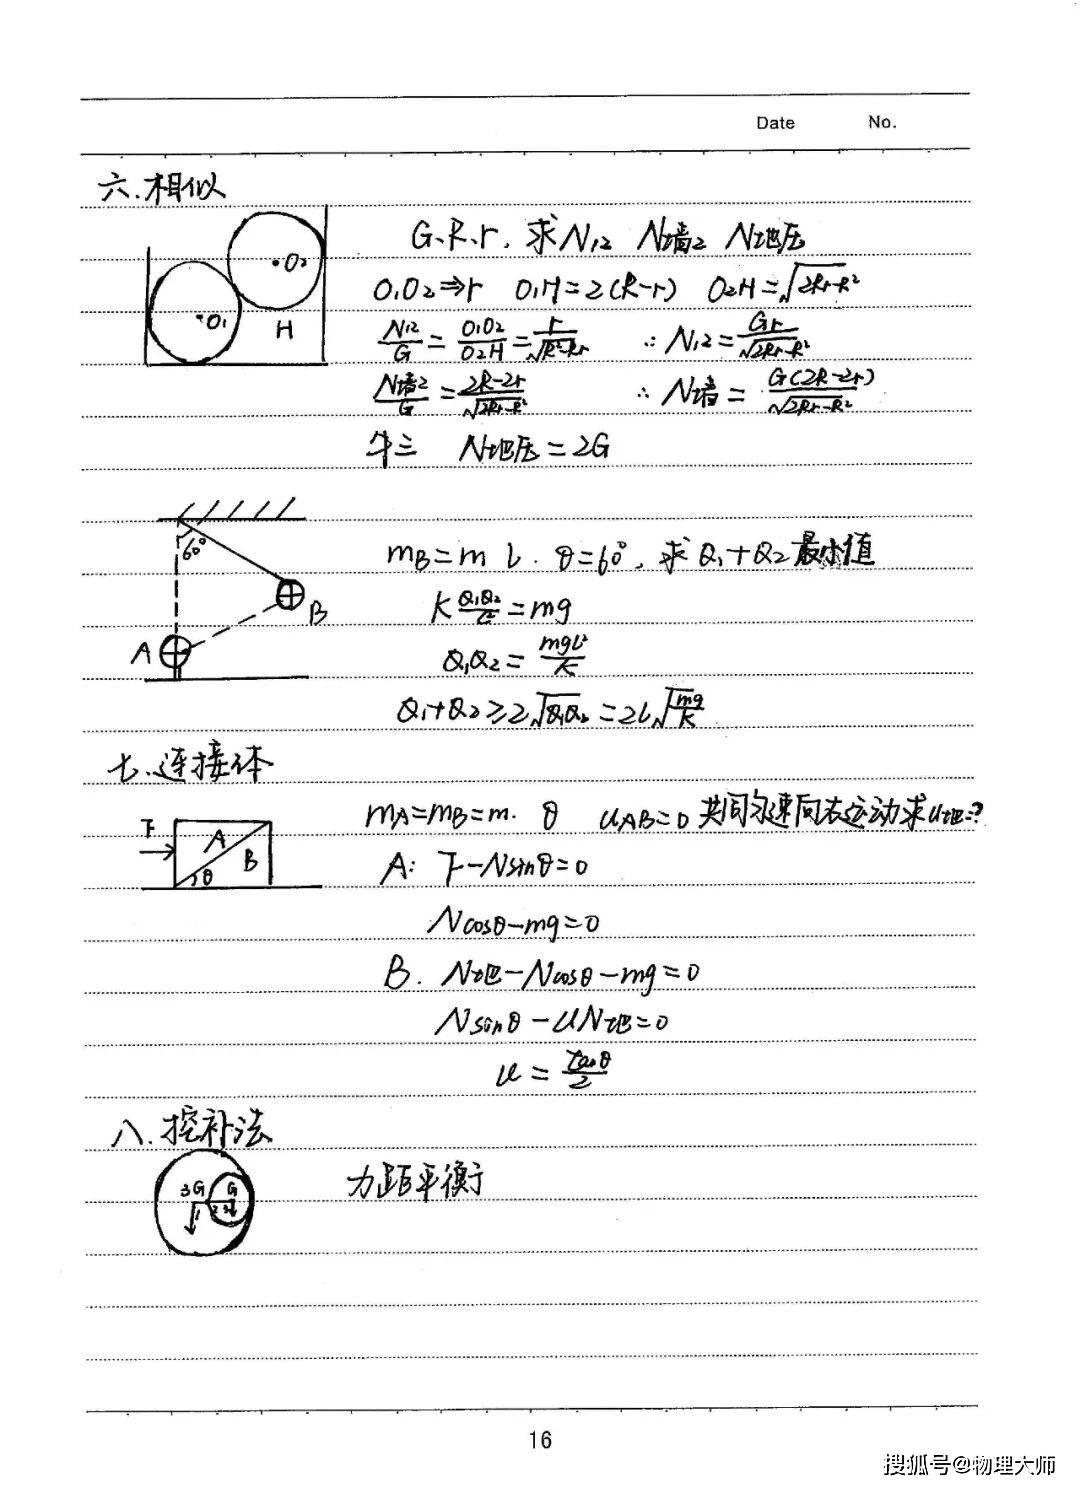 Date No.
六.相似
G、R、r. 求N₁₂ N墙₂ N地压
O₂
O₁
H
O₁O₂⇒r O₁H=2(R-r) O₂H=√(2Rr-R²)
N₁₂/G=O₁O₂/O₂H=r/√(R²-Rr) ∴N₁₂=Gr/√(2Rr-R²)
N墙₂/G=(2R-2r)/√(2Rr-R²) ∴N墙=G(2R-2r)/√(2Rr-R²)
牛三 N地压=2G
60°
B
A
m_B=m L. θ=60°, 求Q₁+Q₂最小值
K Q₁Q₂/L²=mg
Q₁Q₂=mgL²/K
Q₁+Q₂≥2√(Q₁Q₂)=2L√(mg/K)
七.连接体
F
A
B
θ
m_A=m_B=m. θ u_AB=0 共同匀速向右运动求u地=?
A: F-Nsinθ=0
Ncosθ-mg=0
B. N地-Ncosθ-mg=0
Nsinθ-uN地=0
u=tanθ/2
八.挖补法
3G G
力距平衡
16
搜狐号@物理大师